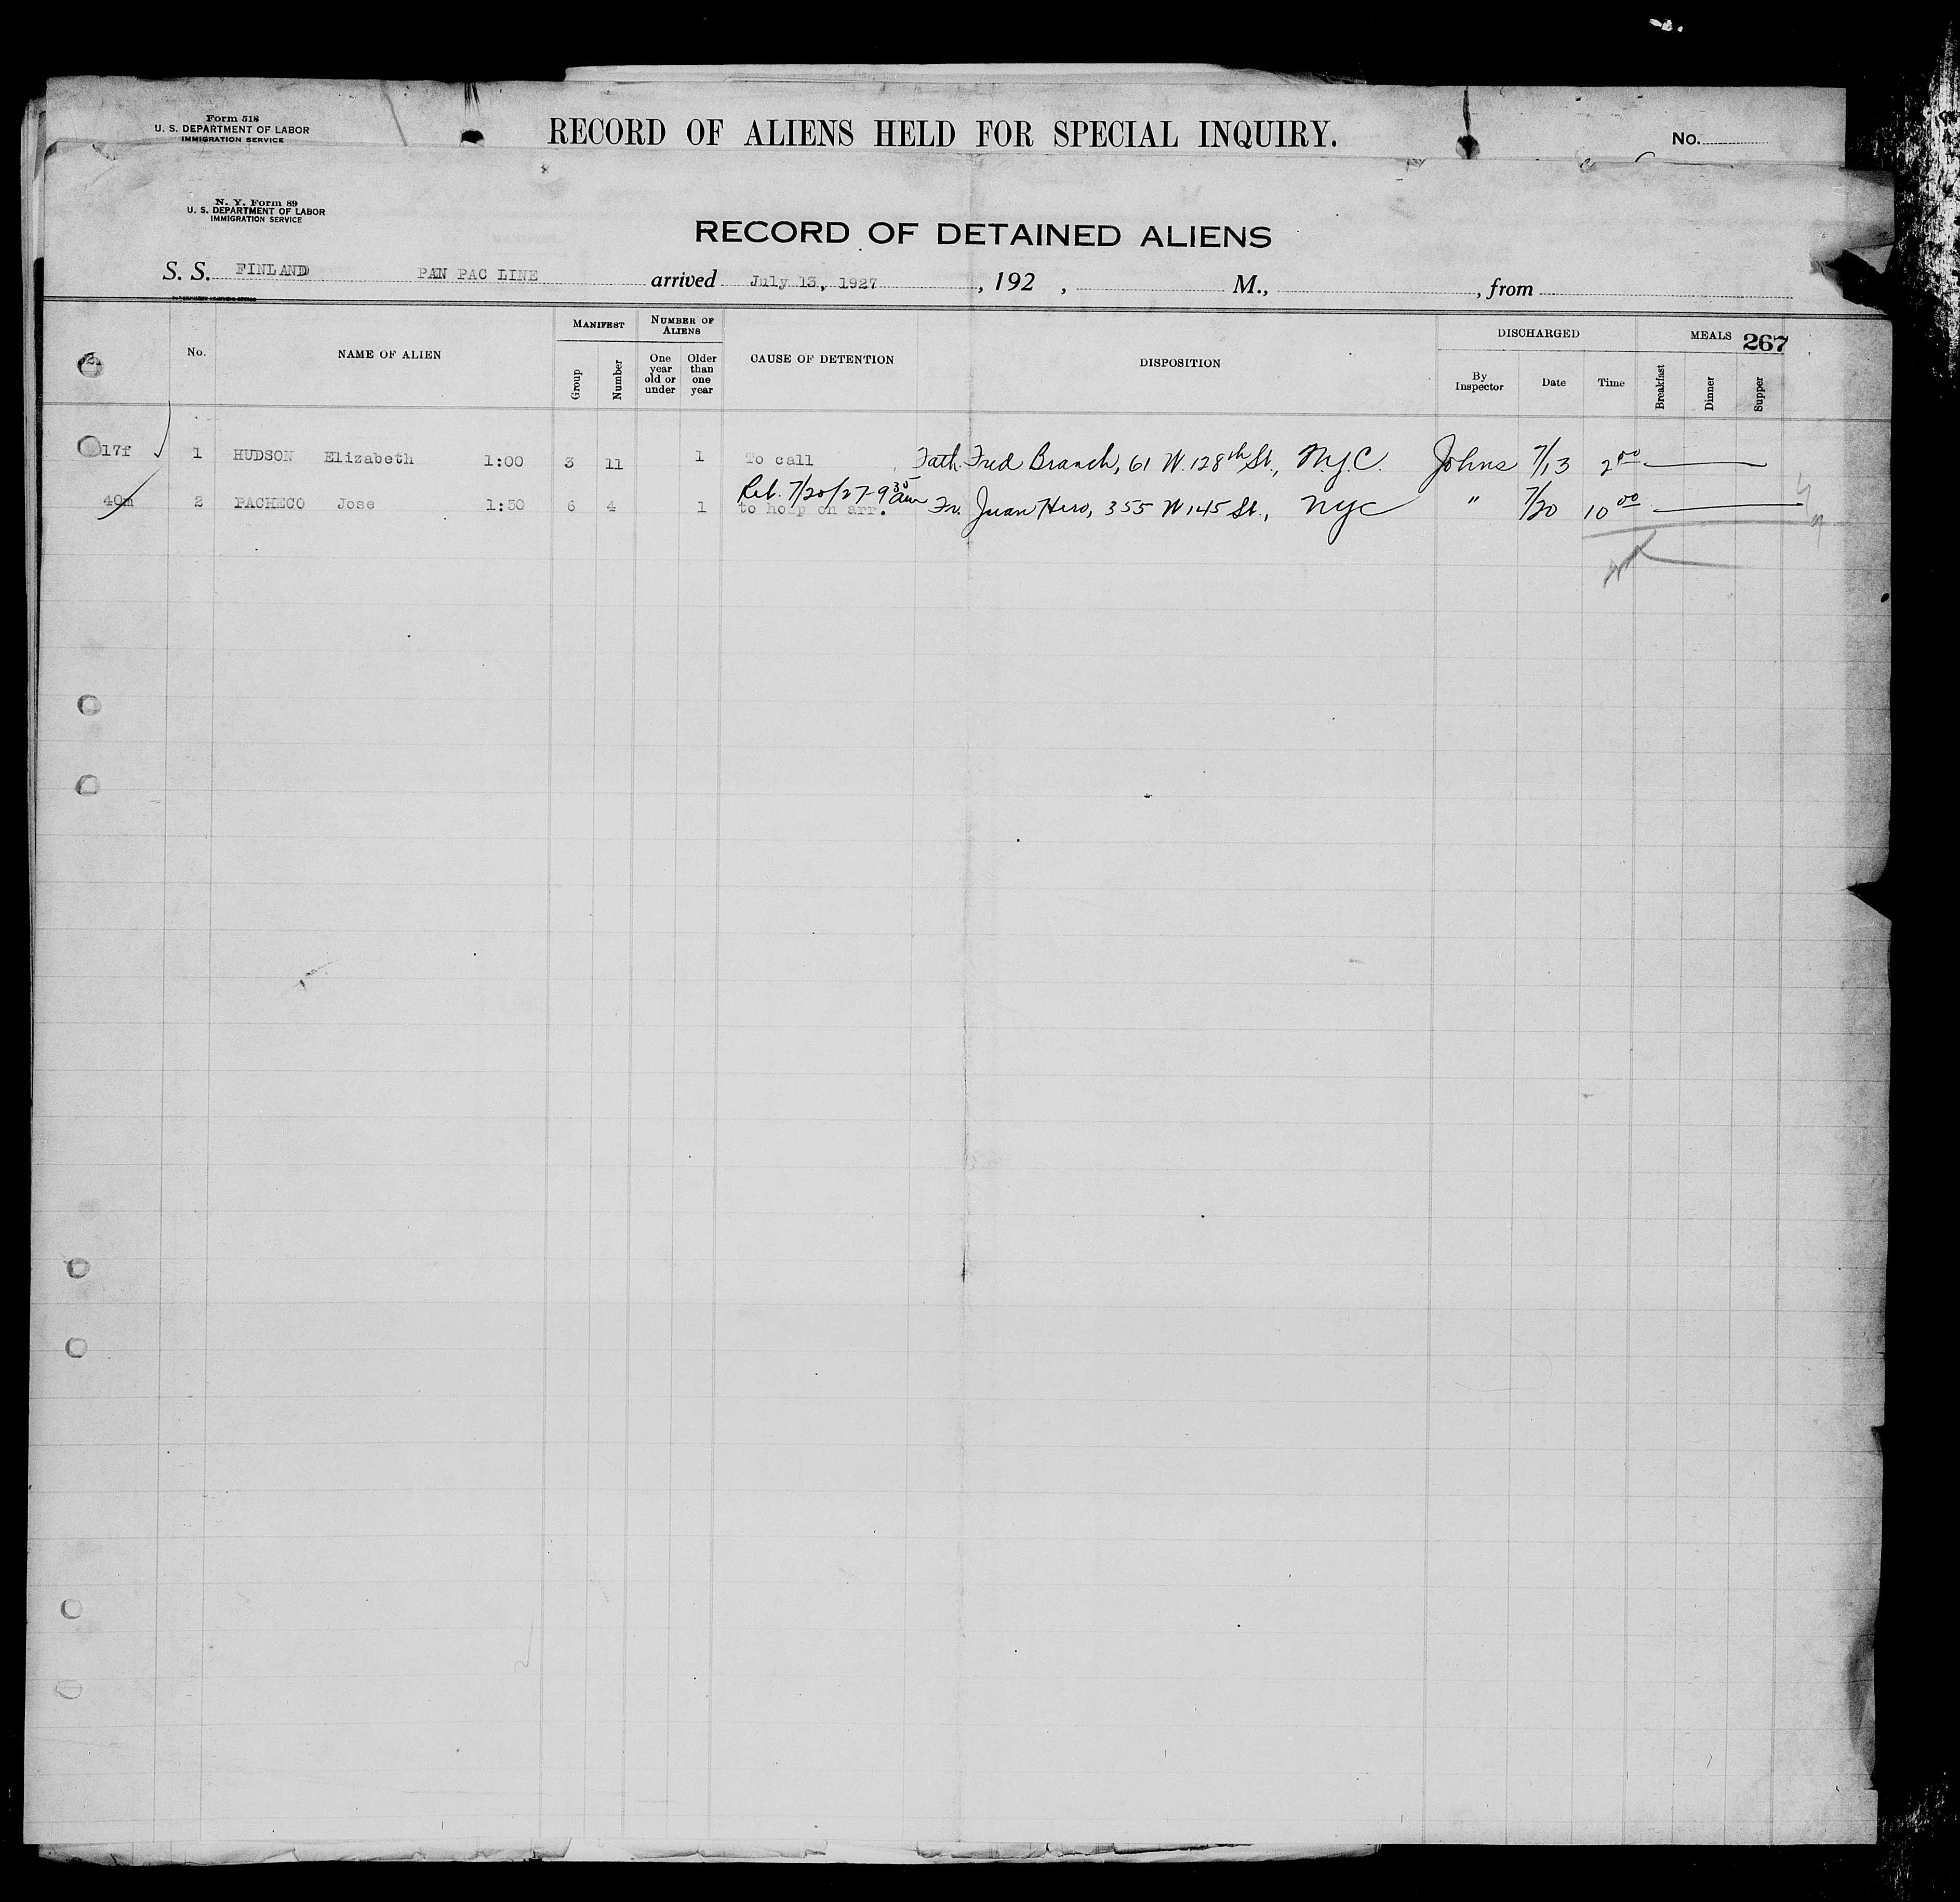 Form 518
U. S. DEPARTMENT OF LABOR
IMMIGRATION SERVICE
RECORD OF ALIENS HELD FOR SPECIAL INQUIRY.
No.
N. Y. Form 89
U. S. DEPARTMENT OF LABOR
IMMIGRATION SERVICE
RECORD OF DETAINED ALIENS
S. S. FINLAND PAN PAC LINE arrived July 13, 1927 , 192 , M., , from
No. NAME OF ALIEN MANIFEST Group Number NUMBER OF ALIENS One year old or under Older than one year CAUSE OF DETENTION DISPOSITION DISCHARGED By Inspector Date Time MEALS 267 Breakfast Dinner Supper
17f 1 HUDSON Elizabeth 1:00 3 11 1 To call Fath. Fred Branch, 61 W. 128th St., N.Y.C. Johns 7/13 2 00
Ret. 7/20/27-9 35 am
40m 2 PACHECO Jose 1:50 6 4 1 to hosp on arr. Fr. Juan Hero, 355 W 145 St., NYC " 7/20 10 00